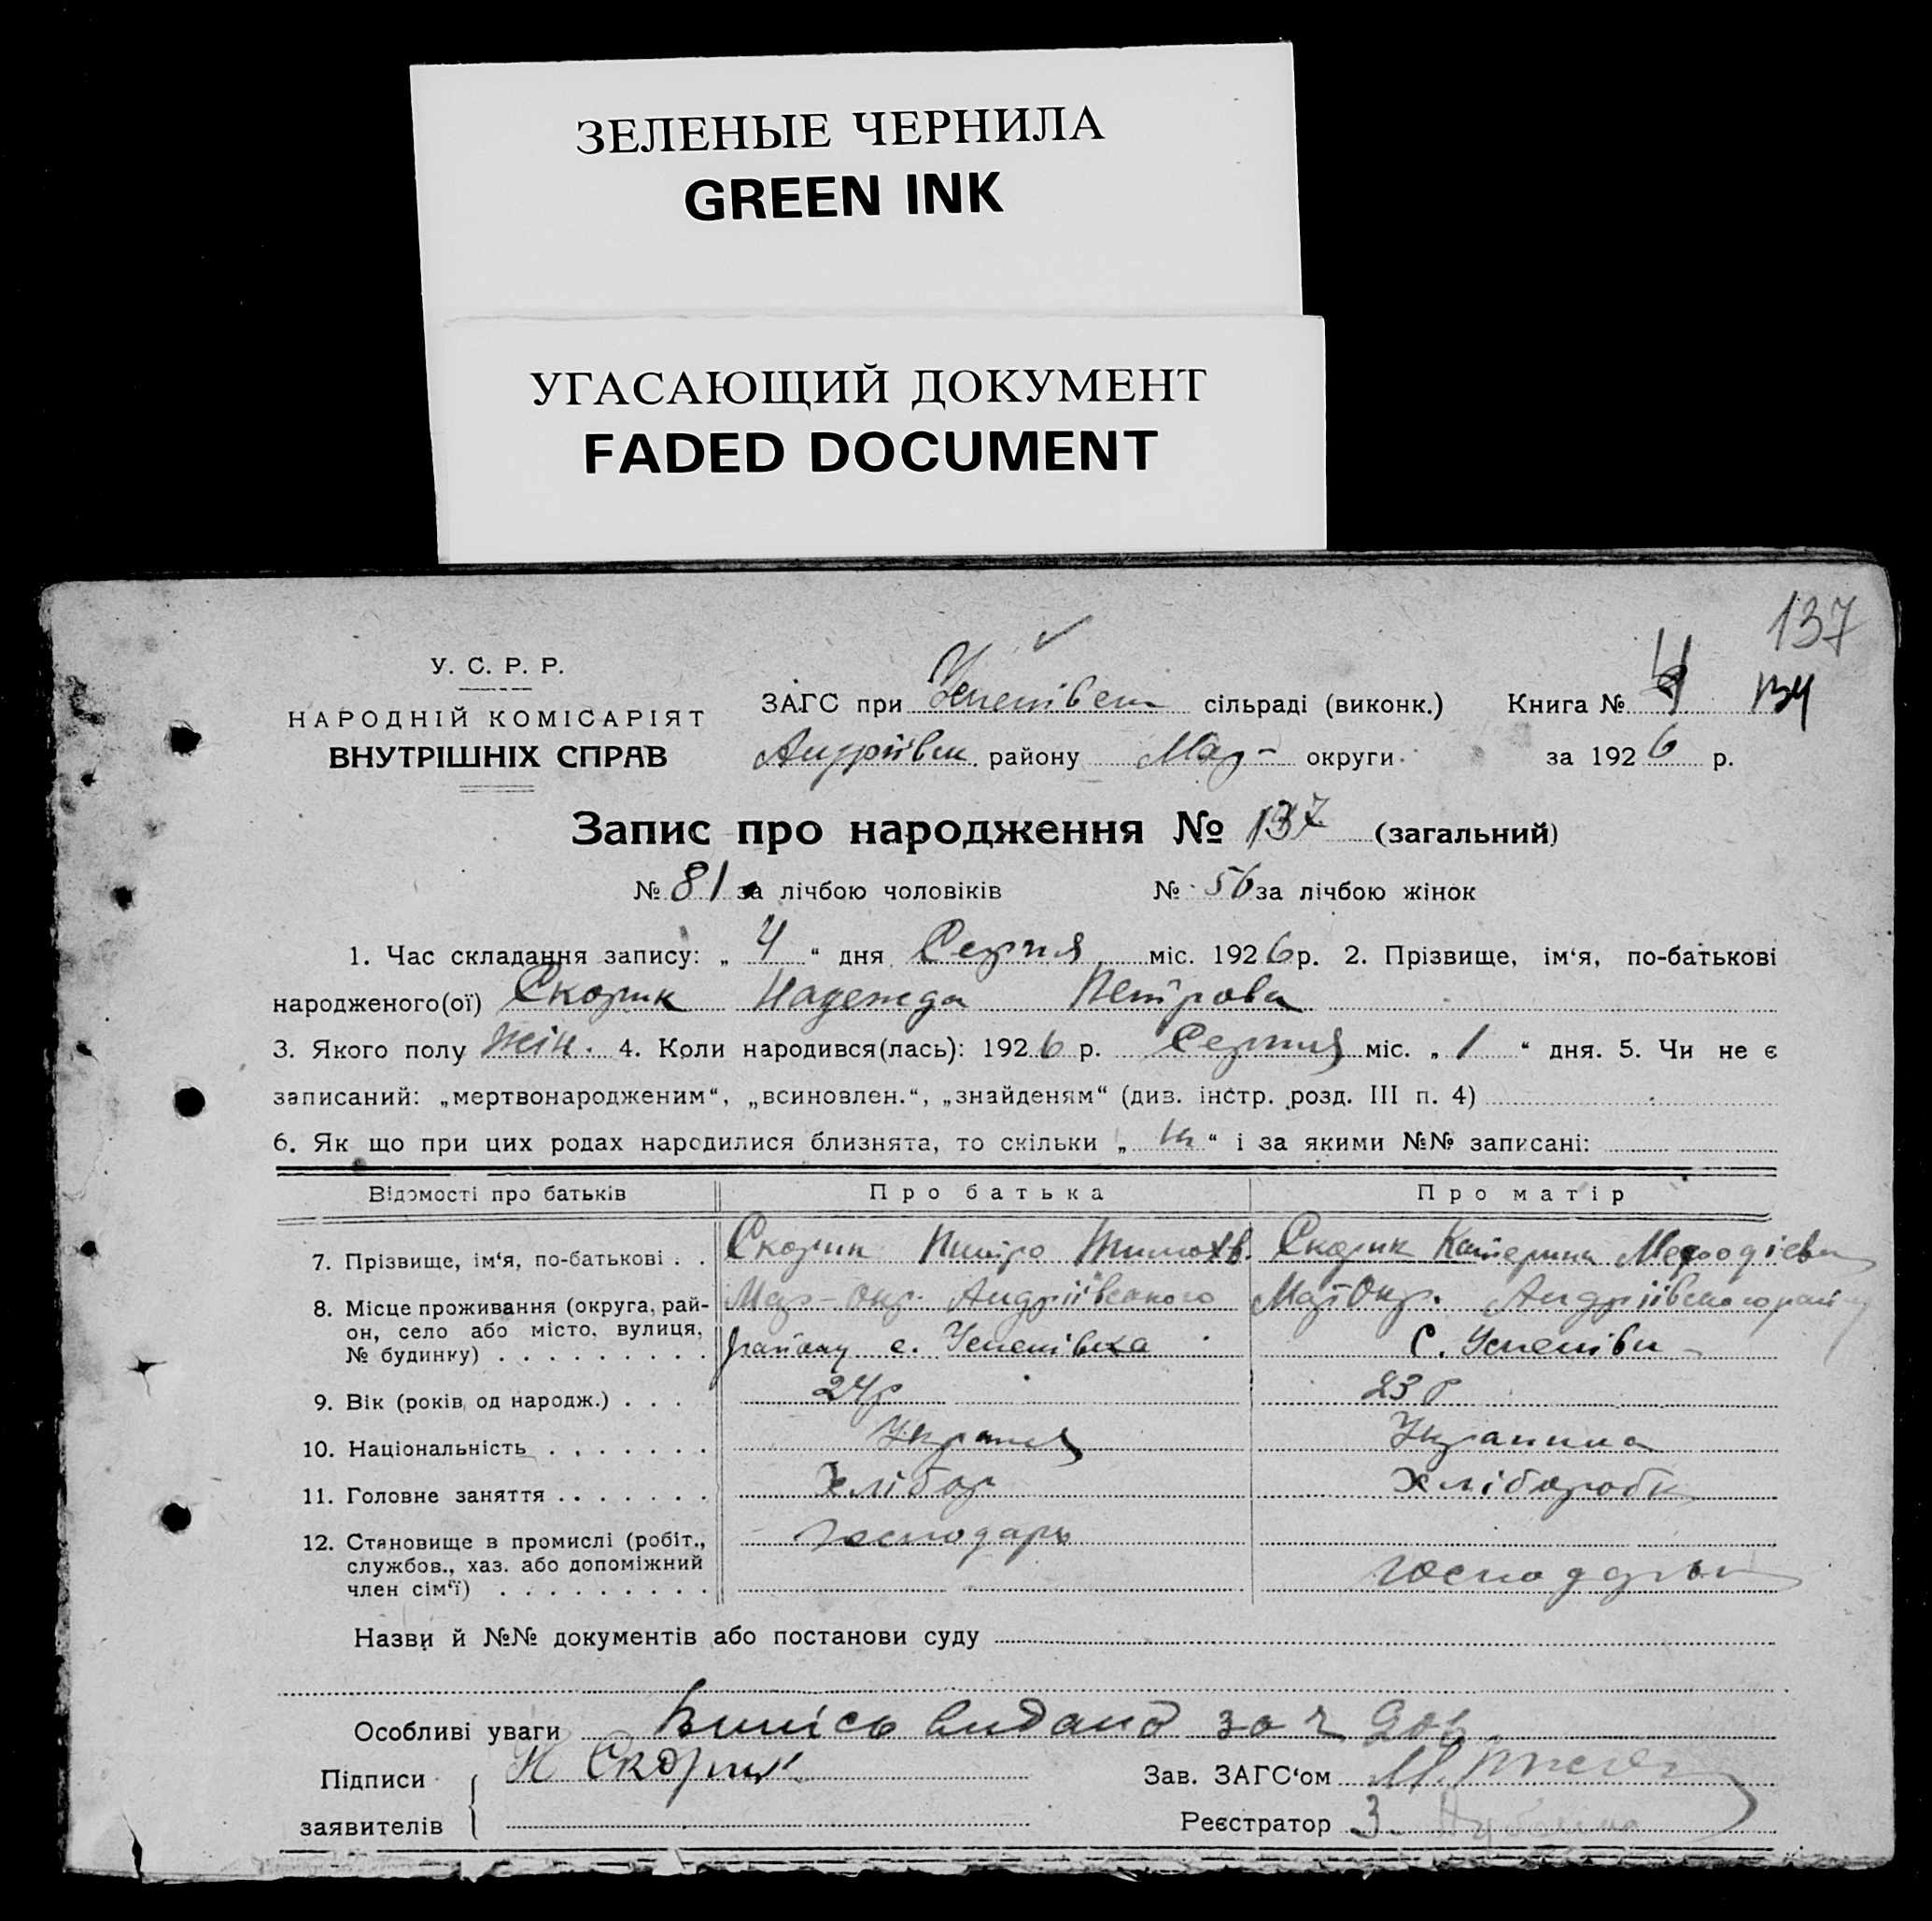 ЗЕЛЕНЫЕ ЧЕРНИЛА
GREEN INK
УГАСАЮЩИЙ ДОКУМЕНТ
FADED DOCUMENT
137
У. С. Р. Р.
НАРОДНІЙ КОМІСАРІЯТ
ВНУТРІШНІХ СПРАВ
ЗАГС при сільраді (виконк.) Книга №
Андріівськ. району Мар- округи за 1926 р.
Запис про народження № 137 (загальний)
№ 81 за лічбою чоловіків № 56 за лічбою жінок
1. Час складання запису: „ 4 “ дня Серпня міс. 1926 р. 2. Прізвище, ім‘я, по-батькові
народженого(ої) Скорик Надежда Петрова
3. Якого полу жін. 4. Коли народився(лась): 1926 р. Серпня міс. „ 1 “ дня. 5. Чи не є
записаний: „мертвонародженим“, „всиновлен.“, „знайденям“ (див. інстр. розд. III п. 4)
6. Як що при цих родах народилися близнята, то скільки „ “ і за якими №№ записані:
Відомості про батьків Про батька Про матір
7. Прізвище, ім‘я, по-батькові . . Скорик Тимохв. Скорик Катерина
8. Місце проживання (округа, рай-
он, село або місто, вулиця,
№ будинку) . . . . . . . . .
Мар-окр. Андріівського
району с.
Мар Окр. Андріівського району
с.
9. Вік (років од народж.) . . . 24р 23 р
10. Національність . . . . . . .
11. Головне заняття . . . . . . . Хлібор Хлібороб
12. Становище в промислі (робіт.,
службов., хаз. або допоміжний
член сім‘ї) . . . . . . . . .
Господарь
Назви й №№ документів або постанови суду
Особливі уваги видано за
Підписи
заявителів
Скорик
Зав. ЗАГС‘ом
Реєстратор